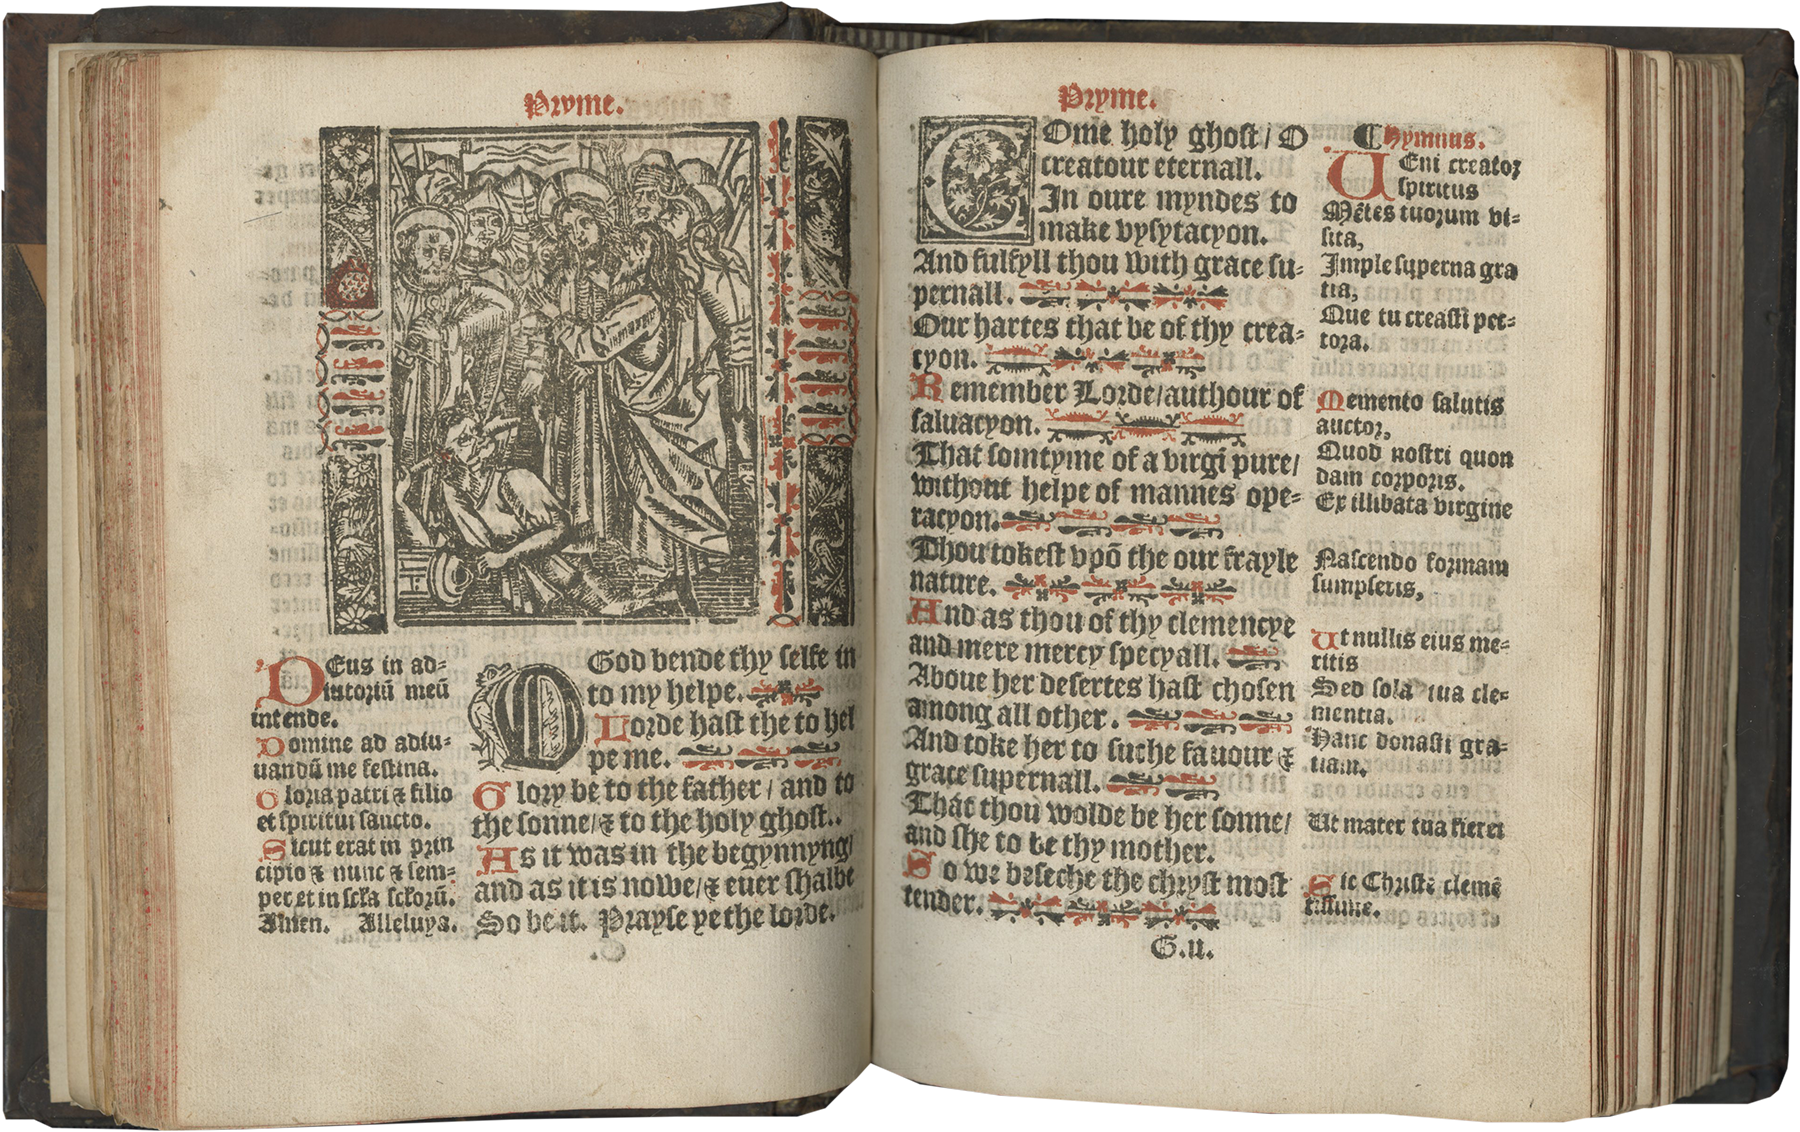 Pryme.
DEus in ad-
iutoriū meū
intende.
Domine ad adiu-
uandū me festina.
Gloria patri & filio
et spiritui sancto.
Sicut erat in prin
cipio & nunc & sem-
per et in scła sclorū.
Amen. Alleluya.
O God bende thy selfe in
to my helpe.
Lorde hast the to hel
pe me.
Glory be to the father / and to
the sonne / & to the holy ghost..
As it was in the begynnyng /
and as it is nowe / & euer shalbe
So be it. Prayse ye the lorde.
Pryme.
COme holy ghost / O
creatour eternall.
In oure myndes to
make vysytacyon.
And fulfyll thou with grace su-
pernall.
Our hartes that be of thy crea-
cyon.
Remember Lorde / authour of
saluacyon.
That somtyme of a virgī pure /
without helpe of mannes ope-
racyon.
Thou tokest vpō the our frayle
nature.
And as thou of thy clemencye
and mere mercy specyall.
Aboue her desertes hast chosen
among all other.
And toke her to suche fauour &
grace supernall.
That thou wolde be her sonne /
and she to be thy mother.
So we beseche the chryst most
tender.
G.ii.
Hymnus.
UEni creator
spiritus
Mētes tuorum vi-
sita,
Imple superna gra
tia,
Que tu creasti pec-
tora.
Memento salutis
auctor,
Quod nostri quon
dam corporis.
Ex illibata virgine
Nascendo formam
sumpseris,
Ut nullis eius me-
ritis
Sed sola tua cle-
mentia.
Hanc donasti gra-
tiam.
Ut mater tua fieret
Sic Christe clemē
tissime.